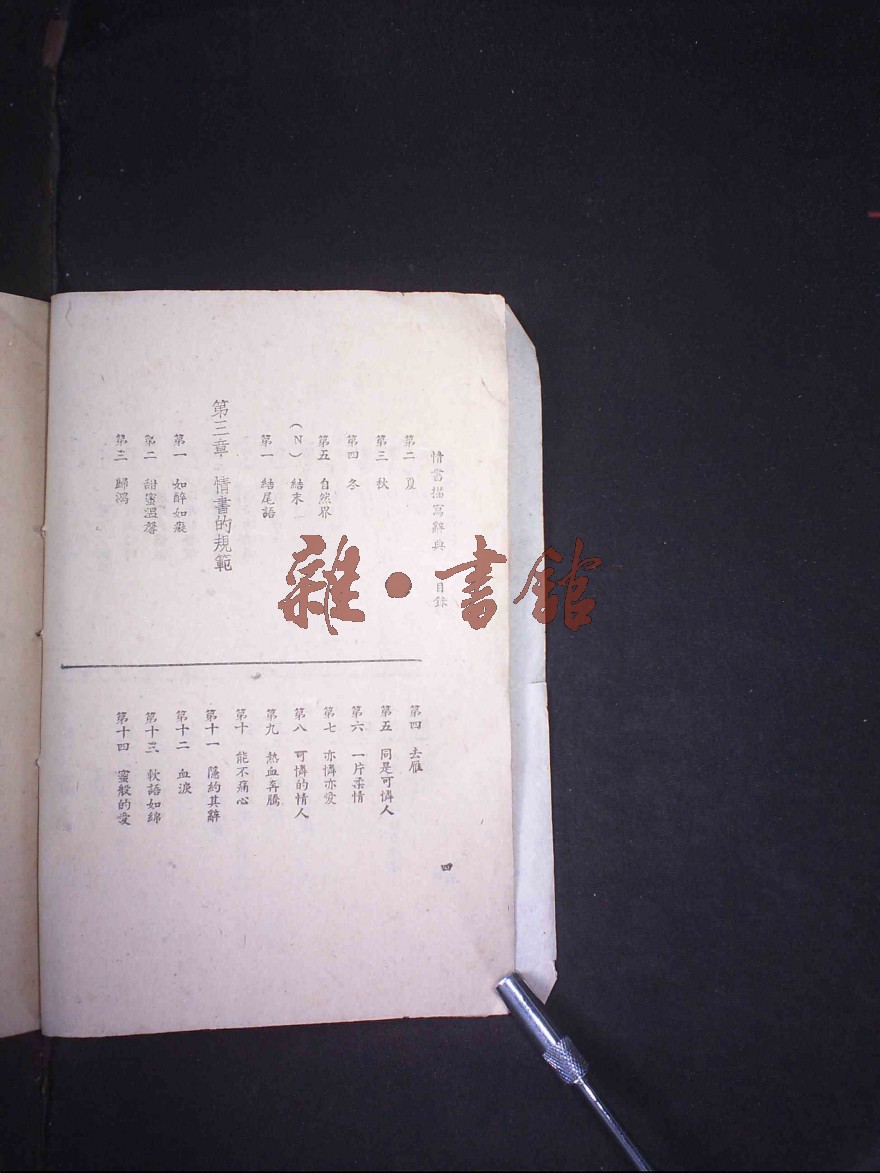 情書描寫辭典 目錄
第二 夏
第三 秋
第四 冬
第五 自然界
(N) 結末
第一 結尾語
第三章 情書的規範
第一 如醉如癡
第二 甜蜜溫馨
第三 歸鴻
第四 去雁
第五 同是可憐人
第六 一片柔情
第七 亦憐亦愛
第八 可憐的情人
第九 熱血奔騰
第十 能不痛心
第十一 隱約其辭
第十二 血淚
第十三 軟語如綿
第十四 蜜般的愛
四
雜·書館